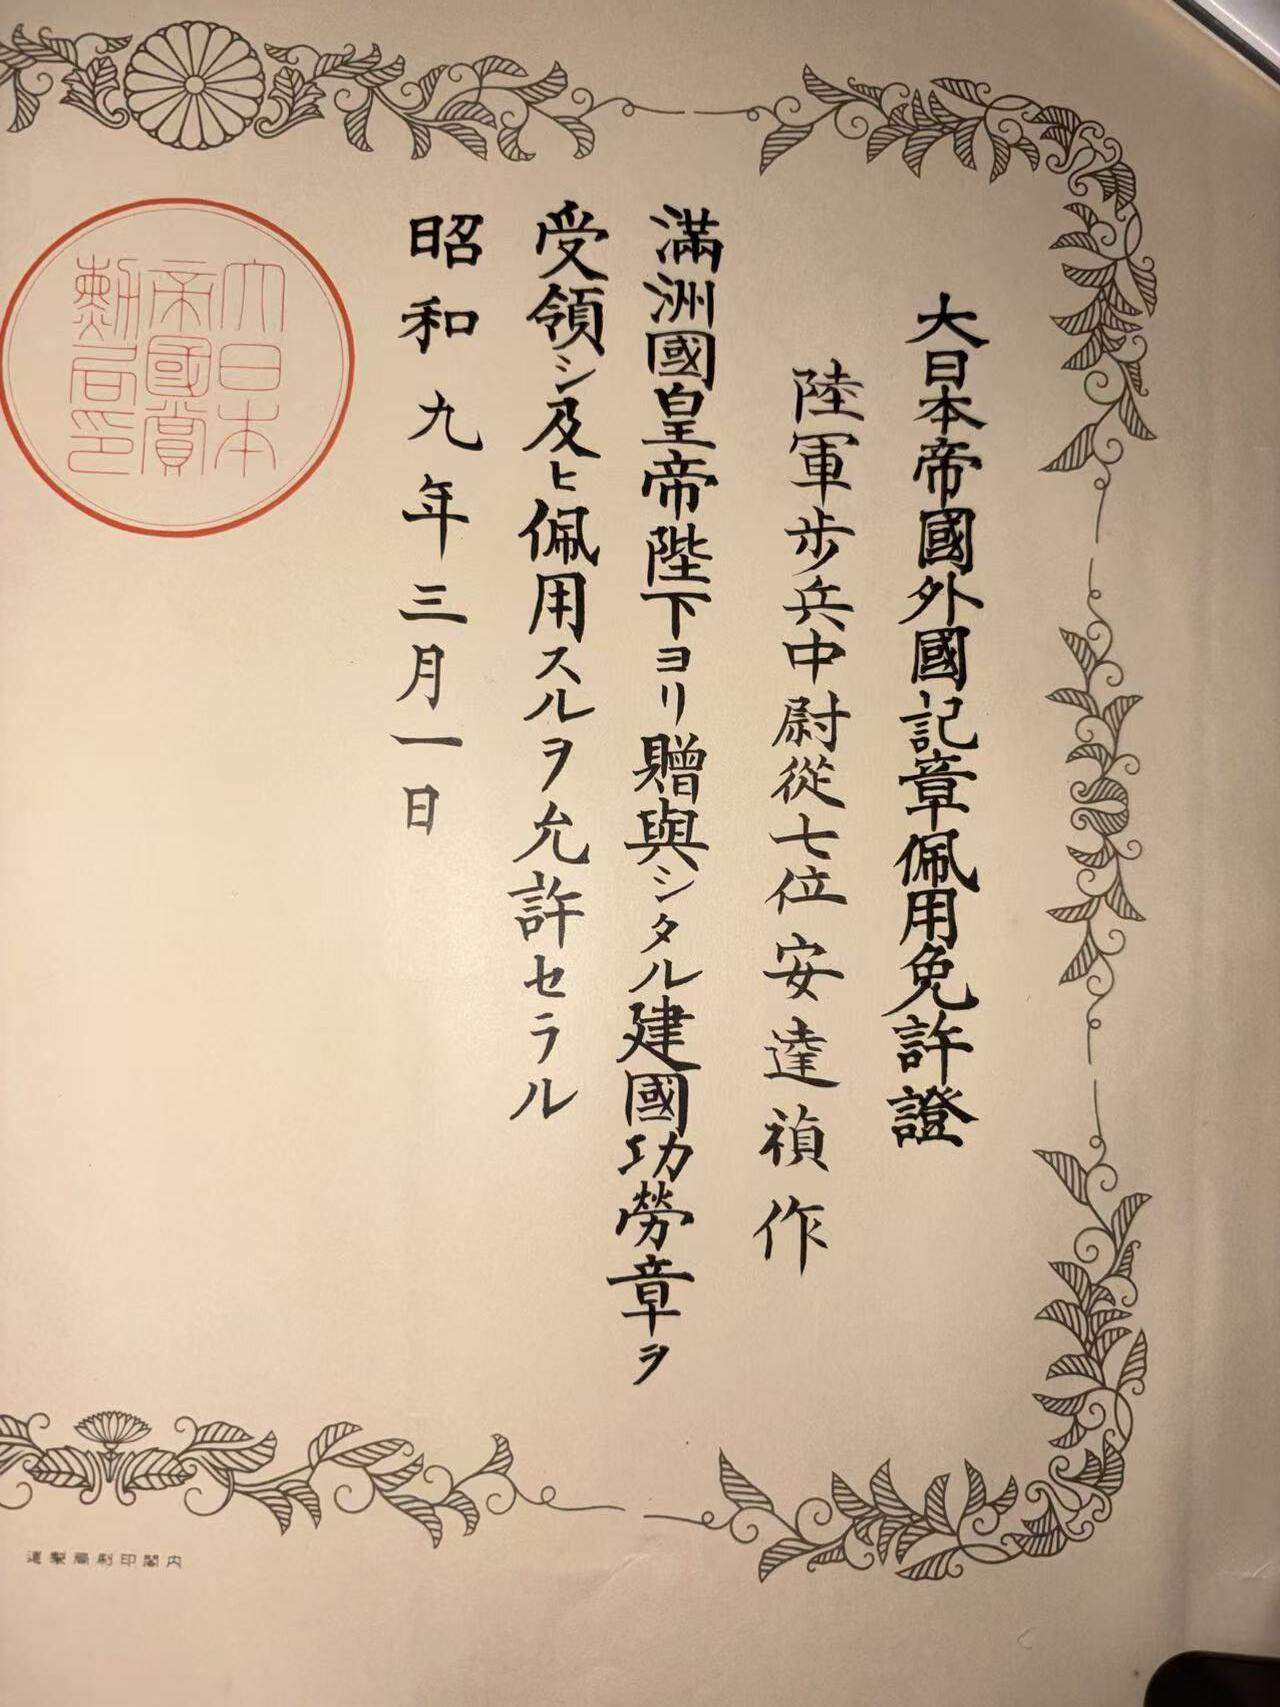 大日本帝國外國記章佩用免許證
陸軍歩兵中尉從七位安達禎作
滿洲國皇帝陛下ヨリ贈與シタル建國功勞章ヲ
受領シ及ヒ佩用スルヲ允許セラル
昭和九年三月一日
大日本
帝國賞
勳局印
內閣印刷局製造